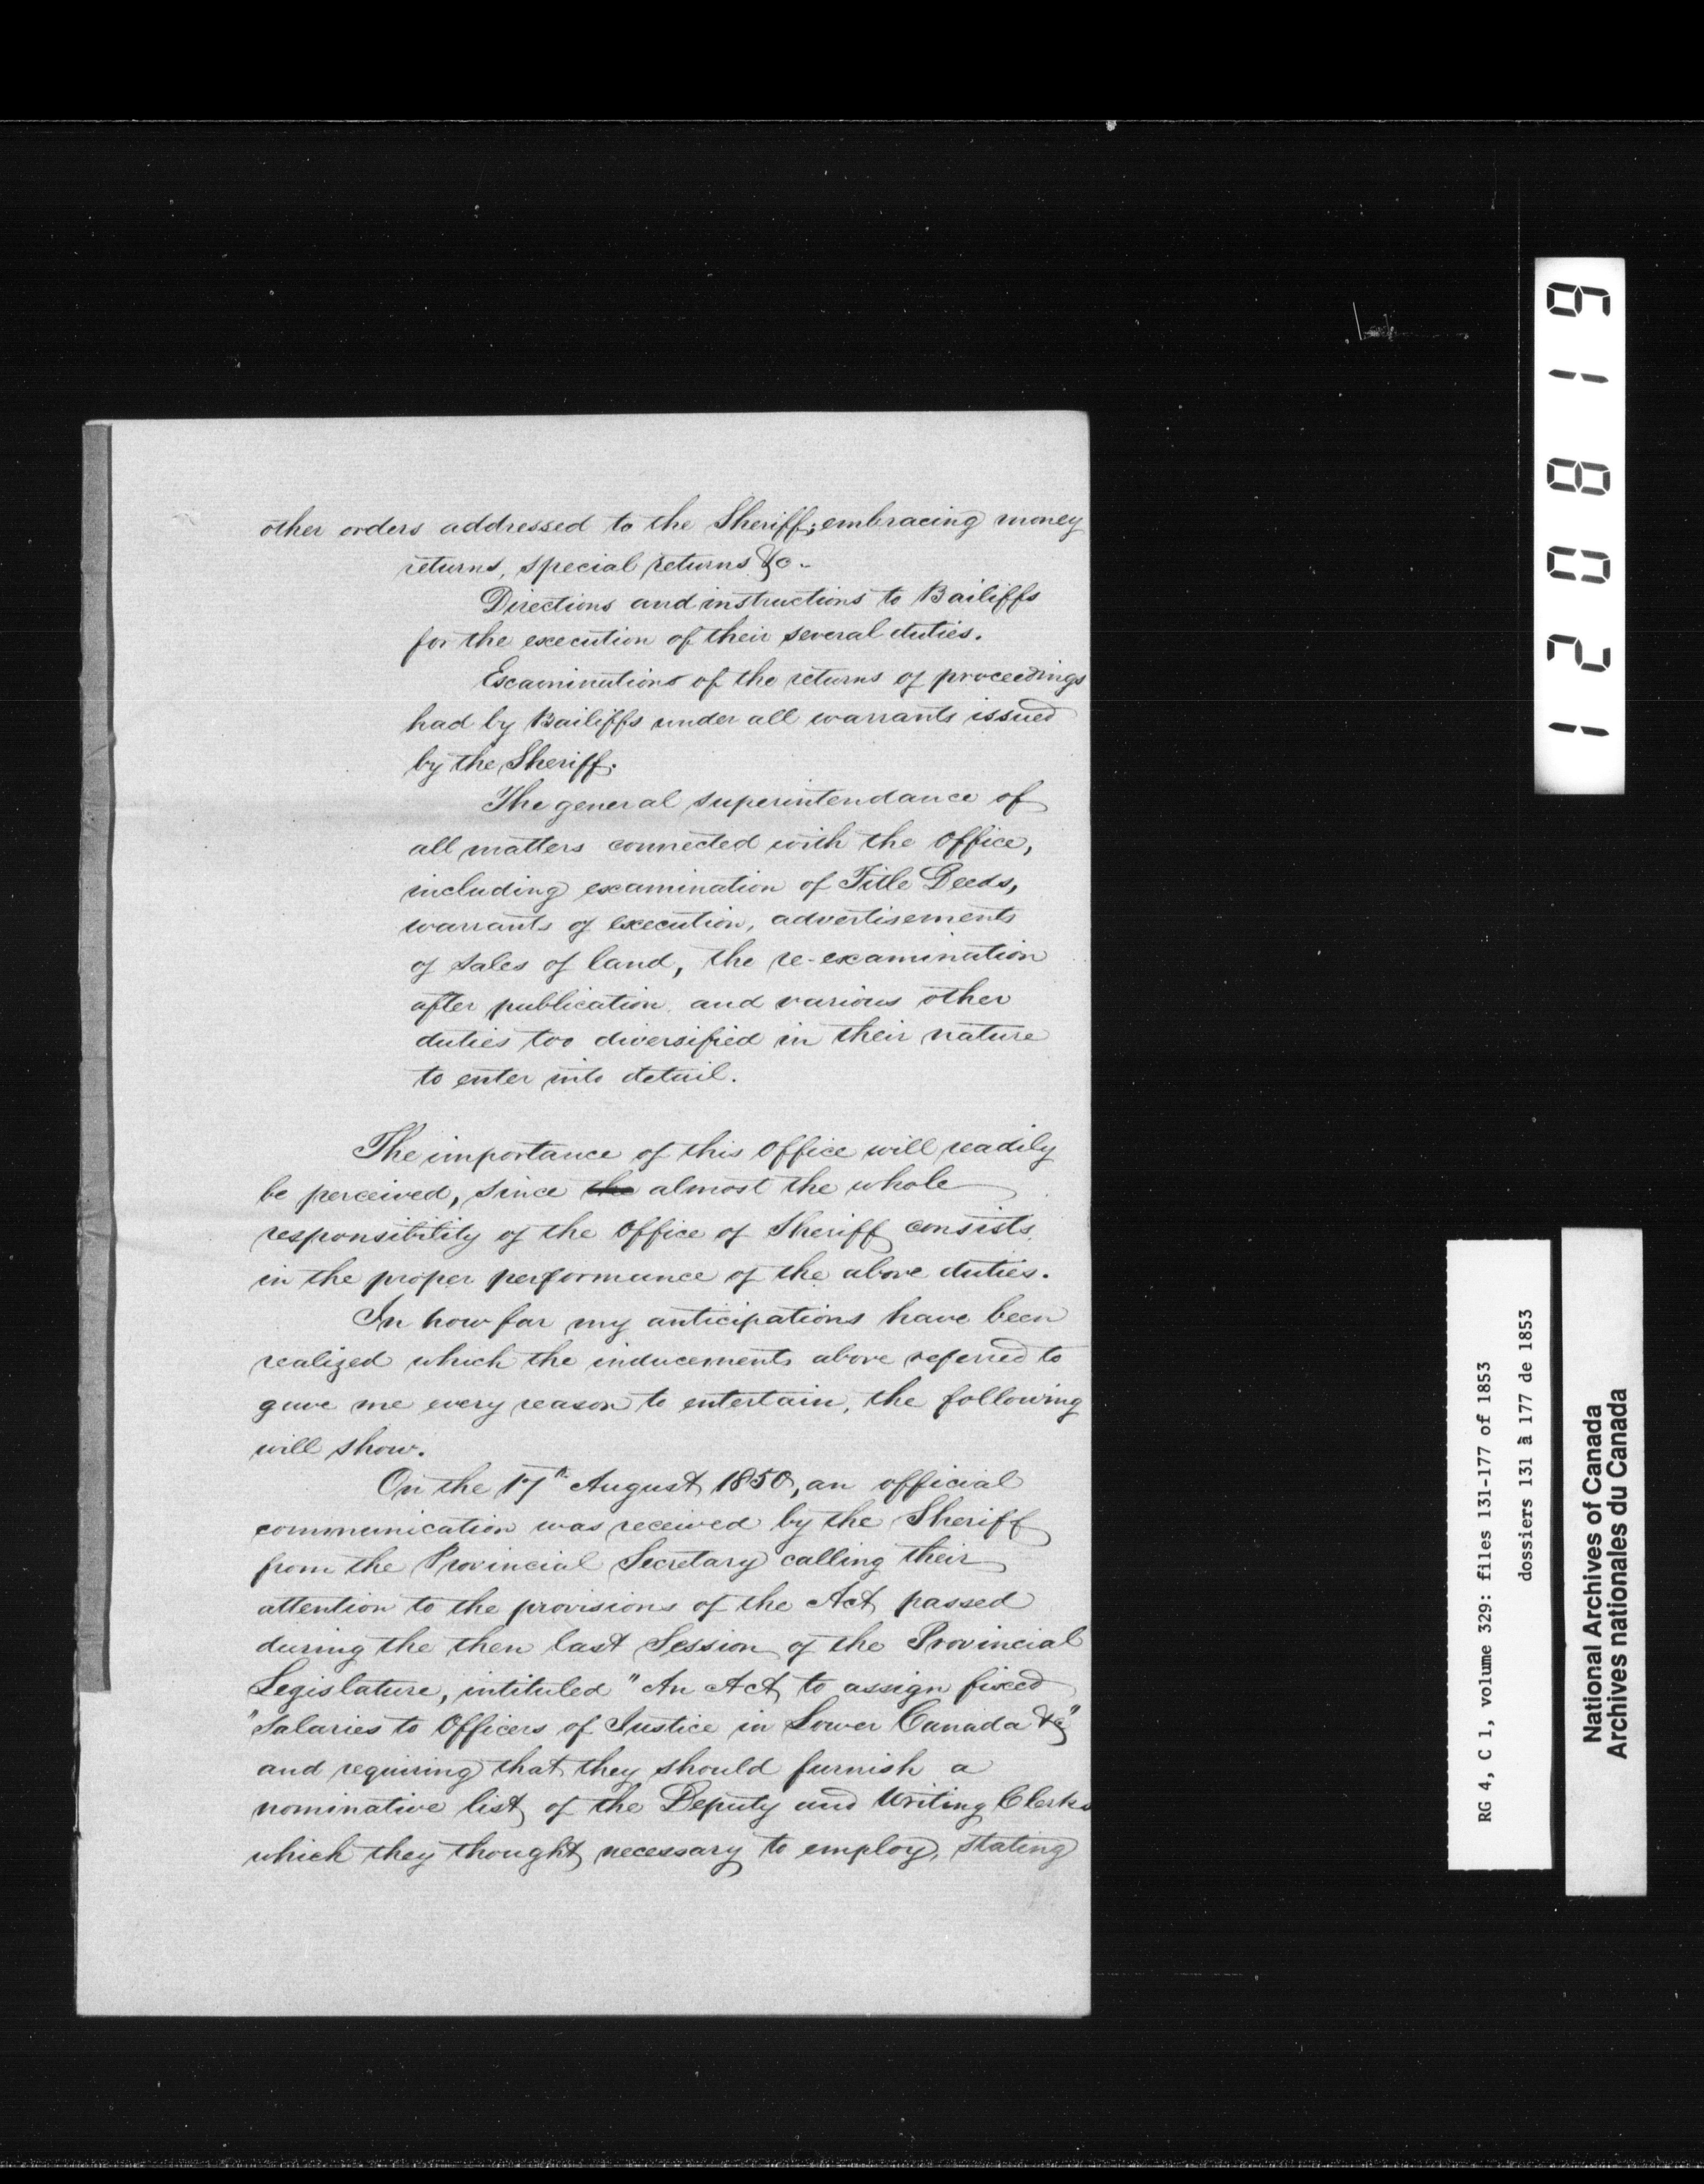 other orders addressed to the Sheriff; embracing money
returns, special returns &c.
Directions and instructions to Bailiffs
for the execution of their several duties.
Examinations of the returns of proceedings
had by Bailiffs under all warrants issued
by the Sheriff.
The general superintendance of
all matters connected with the Office,
including examination of Title Deeds,
warrants of execution, advertisements
of sales of land, the re-examination
after publication, and various other
duties too diversified in their nature
to enter into detail.
The importance of this Office will readily
be perceived, since the almost the whole
responsibility of the Office of Sheriff consists
in the proper performance of the above duties.
In how far my anticipations have been
realized which the inducements above referred to
gave me every reason to entertain, the following
will show.
On the 17th August 1850, an official
communication was received by the Sheriff
from the Provincial Secretary calling their
attention to the provisions of the Act passed
during the then last Session of the Provincial
Legislature, intituled "An Act to assign fixed
"Salaries to Officers of Justice in Lower Canada &c"
and requiring that they should furnish a
nominative list of the Deputy and Writing Clerks
which they thought necessary to employ, stating
120819
RG 4, C 1, volume 329: files 131-177 of 1853
dossiers 131 à 177 de 1853
National Archives of Canada
Archives nationales du Canada